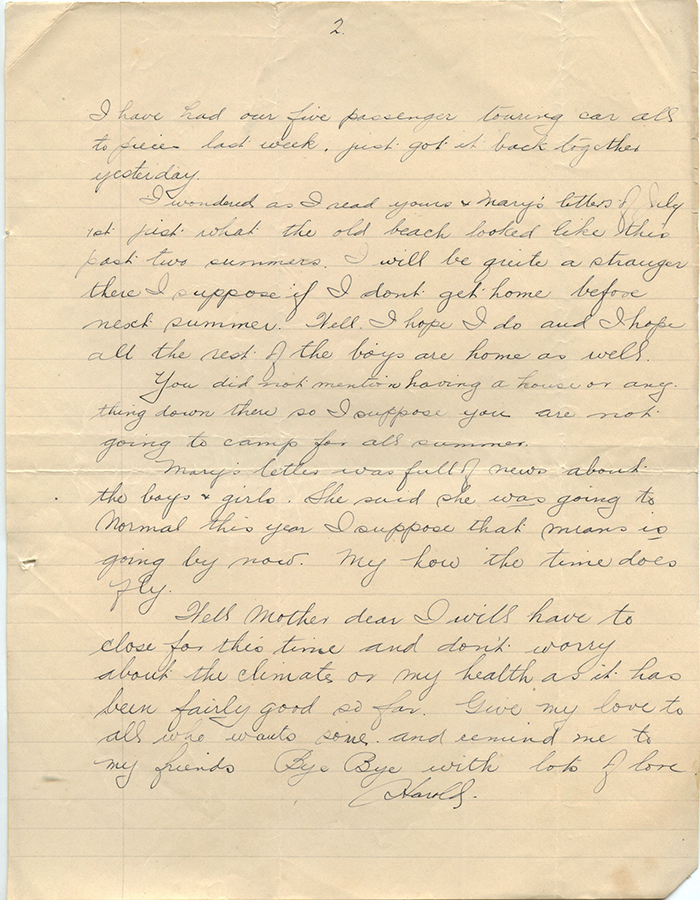 2.
I have had our five passenger touring car all
to pieces last week, just got it back together
yesterday.
I wondered as I read yours & Mary's letters of July
1st just what the old beach looked like this
past two summers. I will be quite a stranger
there I suppose if I dont get home before
next summer. Well I hope I do and I hope
all the rest of the boys are home as well.
You did not mention having a house or any-
thing down there so I suppose you are not
going to camp for all summer.
Mary's letter was full of news about
the boys & girls. She said she was going to
Normal this year I suppose that means is
going by now. My how the time does
fly.
Well Mother dear I will have to
close for this time and don't worry
about the climate or my health as it has
been fairly good so far. Give my love to
all who wants some and remind me to
my friends Bye Bye with lots of love
Harold.